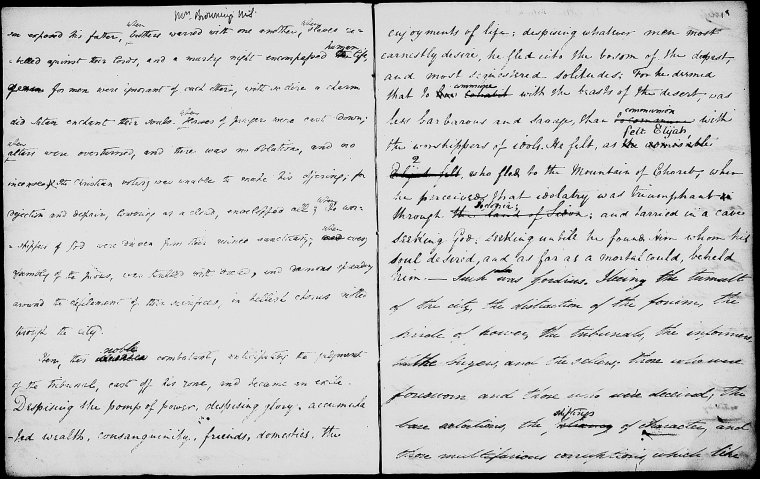 Mrs Browning's MS.
son exposed his father, when brothers warred with one another, when slaves re-
-belled against their lords, and a murky night encompassed human life,
for men were ignorant of each other, with so dire a charm
did Satan enchant their souls. when Houses of prayer were cast down;
when altars were overturned, and there was no oblation, and no
incense; the Christian votary was unable to make his offering; for
dejection and despair, lowering as a cloud, enveloped all; when the wor-
-shippers of God were driven from their sanctuary; when every
family of the pious, was filled with and demons speeding
around the defilement of their sacrifices, in hellish chorus
through the city.
Then, this noble combatant, anticipating the judgment
of the tribunal, cast off his zone, and became an exile.
Despising the pomp of power, despising glory, accumula
-ted wealth, consanguinity, friends, domestics, the
enjoyments of life; despising whatever men most
earnestly desire, he fled into the bosom of the deepest,
and most sequestered solitudes; For he deemed
that to commune with the beasts of the desert, was
less barbarous and savage, than communion with
the worshippers of idols. He felt, as felt Elijah
who fled to the Mountain of Choreb, when
he perceived that idolatry was triumphant
through Sidonia; and tarried in a cave
seeking God; seeking until he found Him whom his
soul desired, and as far as a mortal could, beheld
him. — Such was Gordius. Fleeing the tumult
of the city, the distraction of the forum, the
pride of power, the tribunals, the informers
the buyers, and the sellers, those who were
forsworn and those who were deceived; the
base the of character, and
those multifarious corruptions, which like